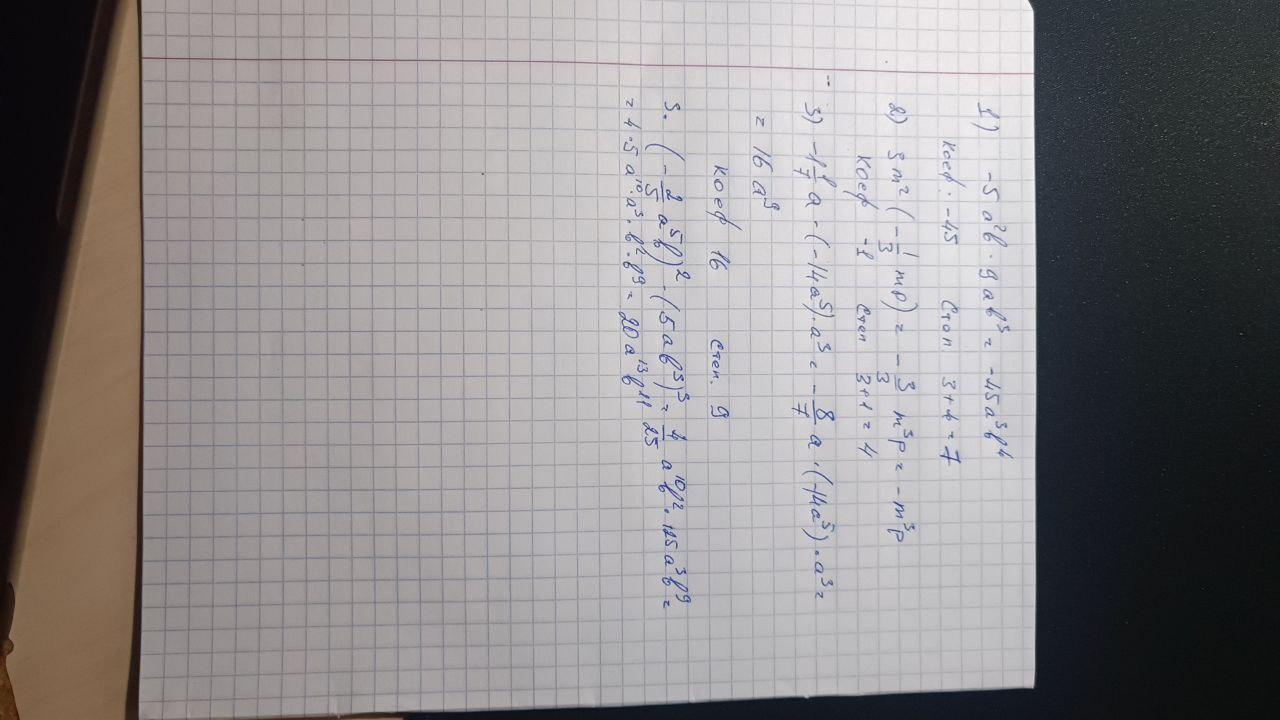 1) -5a²b · 9ab³ = -45a³b⁴
Коеф. -45 Степ 3+4=7
2) 3m² (-1/3 mp) = -3/3 m³p = -m³p
Коеф -1 Степ 3+1=4
3) -1 1/7 a · (-14a⁵) · a³ = -8/7 a · (-14a⁵) · a³ =
= 16a⁹
Коеф 16 степ. 9
3. (-2/5 a⁵b)² · (5ab³)³ = 4/25 a¹⁰b² · 125a³b⁹ =
= 4·5 a¹⁰·a³·b²·b⁹ = 20a¹³b¹¹